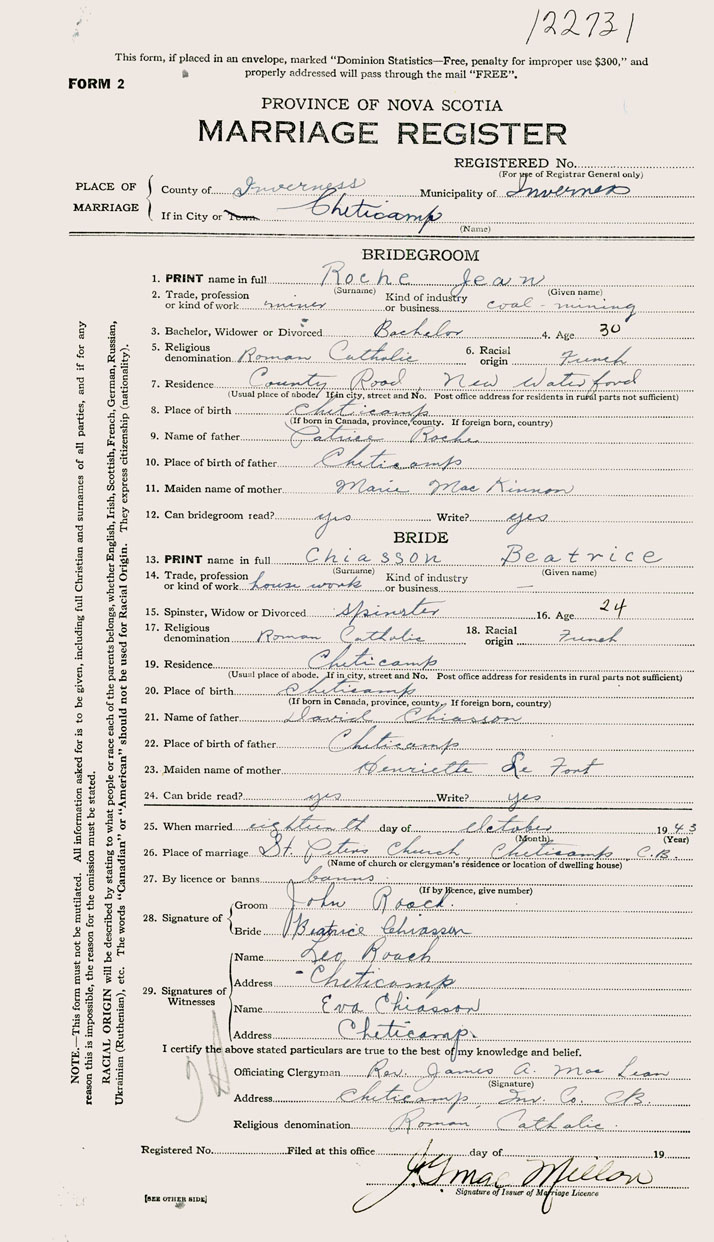 122731
This form, if placed in an envelope, marked “Dominion Statistics—Free, penalty for improper use $300,” and
properly addressed will pass through the mail “FREE”.
FORM 2
PROVINCE OF NOVA SCOTIA
MARRIAGE REGISTER
REGISTERED No.
(For use of Registrar General only)
PLACE OF MARRIAGE
County of Inverness Municipality of Inverness
If in City or Town Cheticamp
(Name)
BRIDEGROOM
1. PRINT name in full Roche Jean
(Surname) (Given name)
2. Trade, profession or kind of work miner Kind of industry or business coal-mining
3. Bachelor, Widower or Divorced Bachelor 4. Age 30
5. Religious denomination Roman Catholic 6. Racial origin French
7. Residence County Road, New Waterford
(Usual place of abode. If in city, street and No. Post office address for residents in rural parts not sufficient)
8. Place of birth Cheticamp
(If born in Canada, province, county. If foreign born, country)
9. Name of father Patrice Roche
10. Place of birth of father Cheticamp
11. Maiden name of mother Marie Mac Kinnon
12. Can bridegroom read? yes Write? yes
BRIDE
13. PRINT name in full Chiasson Beatrice
(Surname) (Given name)
14. Trade, profession or kind of work house work Kind of industry or business —
15. Spinster, Widow or Divorced Spinster 16. Age 24
17. Religious denomination Roman Catholic 18. Racial origin French
19. Residence Cheticamp
(Usual place of abode. If in city, street and No. Post office address for residents in rural parts not sufficient)
20. Place of birth Cheticamp
(If born in Canada, province, county. If foreign born, country)
21. Name of father David Chiasson
22. Place of birth of father Cheticamp
23. Maiden name of mother Henriette Le Fort
24. Can bride read? yes Write? yes
25. When married eighteenth day of October 1943
(Month) (Year)
26. Place of marriage St. Peters Church Cheticamp C.B.
(Name of church or clergyman's residence or location of dwelling house)
27. By licence or banns banns
(If by licence, give number)
28. Signature of
Groom John Roach.
Bride Beatrice Chiasson
29. Signatures of Witnesses
Name Leo Roach
Address Cheticamp
Name Eva Chiasson
Address Cheticamp.
I certify the above stated particulars are true to the best of my knowledge and belief.
Officiating Clergyman Rev. James A. Mac Lean
(Signature)
Address Cheticamp, Inv. Co. C.B.
Religious denomination Roman Catholic.
Registered No. Filed at this office day of 19
J. G. Mac Millan
Signature of Issuer of Marriage Licence
[SEE OTHER SIDE]
NOTE.—This form must not be mutilated. All information asked for is to be given, including full Christian and surnames of all parties, and if for any
reason this is impossible, the reason for the omission must be stated.
RACIAL ORIGIN will be described by stating to what people or race each of the parents belongs, whether English, Irish, Scottish, French, German, Russian,
Ukrainian (Ruthenian), etc. The words “Canadian” or “American” should not be used for Racial Origin. They express citizenship (nationality).